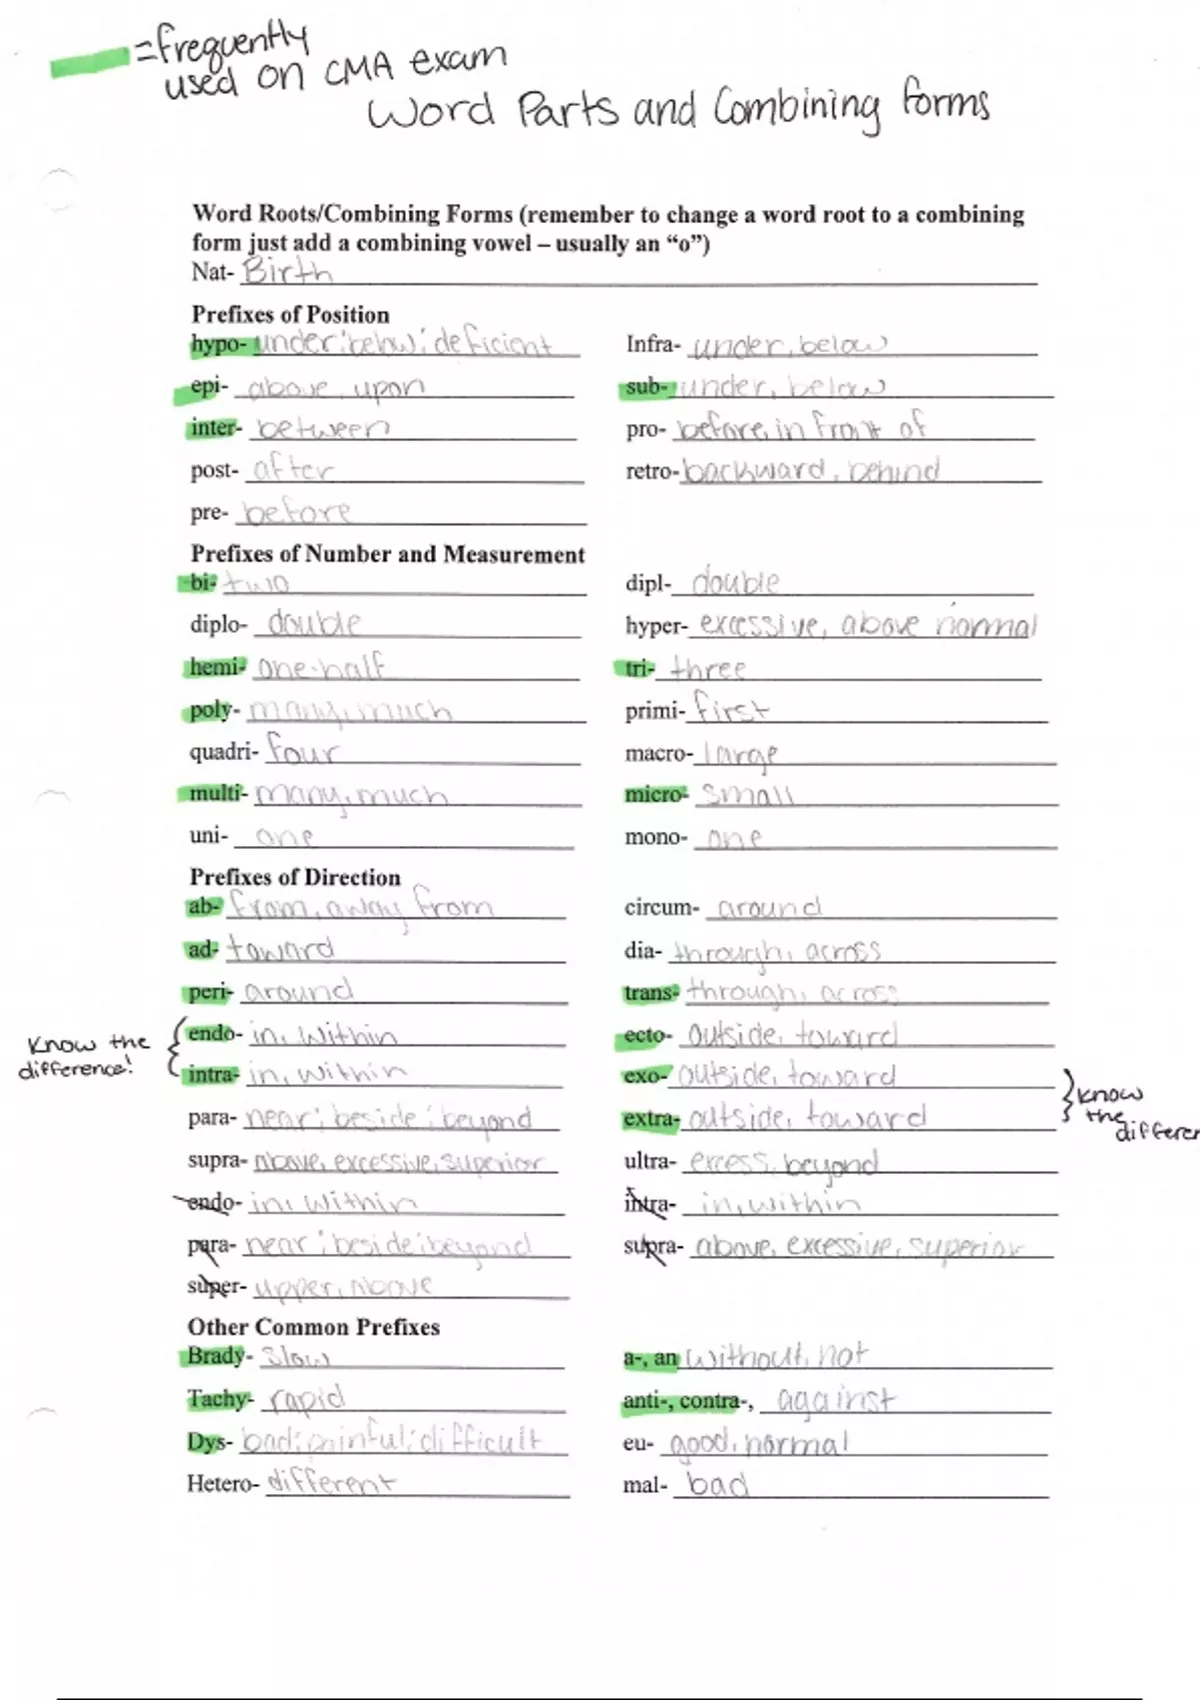 =frequently
used on CMA exam
Word Parts and Combining forms
Word Roots/Combining Forms (remember to change a word root to a combining
form just add a combining vowel – usually an “o”)
Nat- Birth
Prefixes of Position
hypo- under; below; deficient Infra- under, below
epi- above, upon sub- under, below
inter- between pro- before, in front of
post- after retro- backward, behind
pre- before
Prefixes of Number and Measurement
bi- two dipl- double
diplo- double hyper- excessive, above normal
hemi- one-half tri- three
poly- many, much primi- first
quadri- four macro- large
multi- many, much micro- small
uni- one mono- one
Prefixes of Direction
ab- from, away from circum- around
ad- toward dia- through, across
peri- around trans- through, across
Know the
difference!
endo- in, within ecto- outside, toward
intra- in, within exo- outside, toward
know
the
differen
para- near; beside; beyond extra- outside, toward
supra- above, excessive, superior ultra- excess, beyond
endo- in, within intra- in, within
para- near; beside; beyond supra- above, excessive, superior
super- upper, above
Other Common Prefixes
Brady- slow a-, an without, not
Tachy- rapid anti-, contra-, against
Dys- bad; painful; difficult eu- good, normal
Hetero- different mal- bad